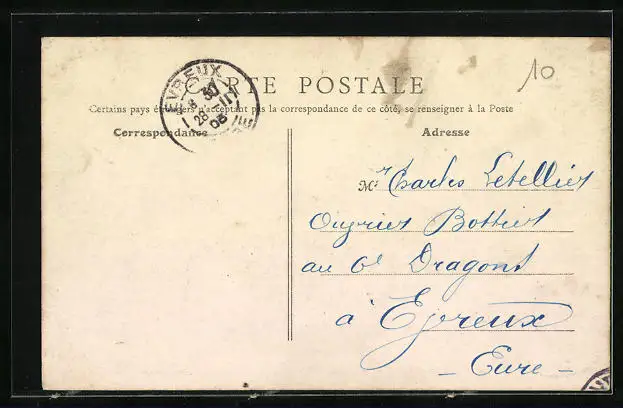 10
CARTE POSTALE
EVREUX
8 30
28 -11
05
EURE
Certains pays étrangers n'acceptant pas la correspondance de ce côté, se renseigner à la Poste
Correspondance
Adresse
Mr Charles Letellier
Ouvrier Bottier
au 6e Dragons
à Evreux
- Eure -